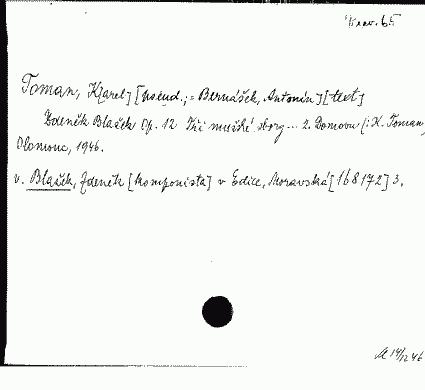 Toman, K[arel] [pseud.; = Bernášek, Antonín] [text]
Zdeněk Blažek Op. 12 Tři mužské sbory... 2. Domovu (: K. Toman,
Olomouc, 1946.
v. Blažek, Zdeněk [komponista] v Edice, Moravská [168172] 3.